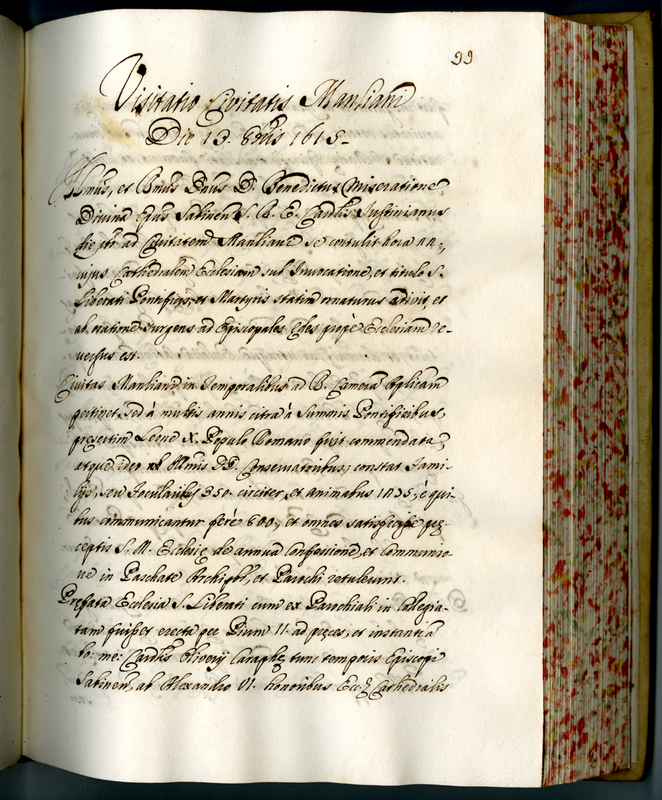 99
Visitatio Civitatis Manliani
Die 13. 8bris 1615.
Illmus, et Rmus Dnus D. Benedictus Miseratione
Divina Epus Sabinen S. R. E. Cardlis Justinianus
die ad Civitatem Manlianam se contulit hora
cujus Cathedralem Ecclesiam sub Invocatione, et titulo S.
Liberati Pontificis, et Martyris statim oraturus adivit, et
ab oratione surgens ad Episcopales Ædes propè Ecclesiam re-
versus est.
Civitas Manliana in Temporalibus ad R. Cameram Aplicam
pertinet, sed à multis annis citra à Summis Pontificibus,
presertim Leone X. Populo Romano fuit commendata,
atque ideo Illmis DD. Conservatoribus; constat Fami-
lijs, seu focularibus 350. circiter, et animabus 1435, è qui-
bus communicantur ferè 800, et omnes satisfecisse prę-
ceptis S. M. Ecclesię de annua Confessione, et Communio-
ne in Paschate Archipbr, et Parochi retulerunt.
Prefata Ecclesia S. Liberati cum ex Parochiali in Collegia-
tam fuisset erecta per Pium II. ad preces, et instantiã
bo: me: Cardlis Oliverij Caraphę tunc temporis Episcopi
Sabinen, ab Alexandro VI. honoribus Eccę Cathedralis